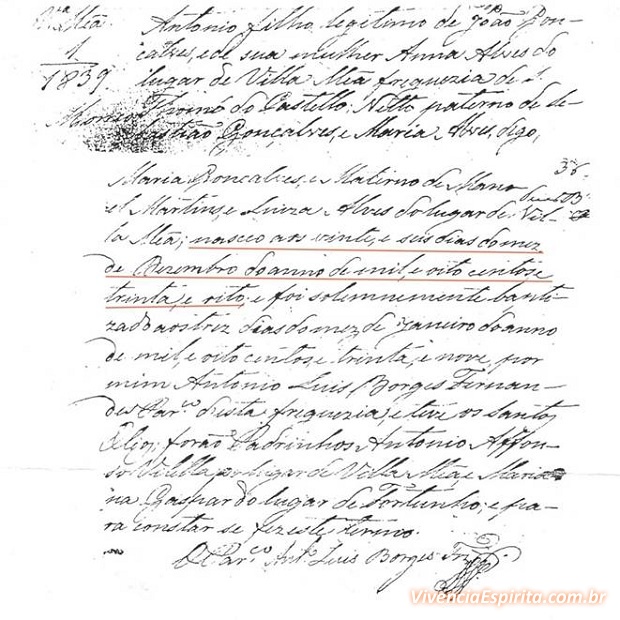 Vª Meã
1
1839.
Antonio filho legitimo de João Gon-
calves, e de sua mulher Anna Alves do
lugar de Villa Meã freguezia de S.
Thomé do Castello, Netto paterno de Se-
bastião Gonçalves, e Maria Alves, digo,
Maria Goncalves, e Materno de Mano
el Martins, e Luiza Alves do lugar de Vil-
la Meã; nasceo aos vinte, e seis dias do mez
de Dezembro do anno de mil, e oito centos e
trinta, e oito, e foi solemnemente bapti-
zado aos trez dias do mez de Janeiro do anno
de mil, e oito centos e trinta, e nove, por
mim Antonio Luis Borges Fernan-
des Par.co desta freguezia, e teve os santos
Oleos; forão Padrinhos Antonio Affon-
so Vilella do lugar de Villa Meã, e Maria
na Gaspar do lugar de Fortunho; e pa-
ra constar se fez este termo.
O Par.co Ant.o Luis Borges Frz
VivenciaEspirita.com.br